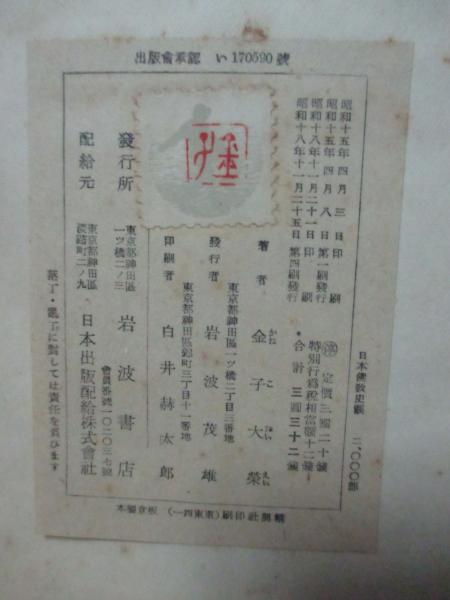 出版會承認 い170590號
日本佛敎史觀 二〇〇〇部
昭和十五年四月 三 日印 刷
昭和十五年四月 八 日第一刷發行
昭和十八年十一月二十一日印 刷
昭和十八年十一月二十五日 第四刷發行
定價三圓二十錢
特別行爲稅相當額十二錢
合計 三圓三十二錢
著者 金子大榮
かね こ だい えい
東京都神田區一ツ橋二丁目三番地
發行者 岩波茂雄
東京都神田區錦町三丁目十一番地
印刷者 白井赫太郎
發行所
東京都神田區一ツ橋二ノ三
岩波書店
會員番號一〇二〇三七號
配給元
東京都神田區淡路町二ノ九
日本出版配給株式會社
落丁・亂丁に對しては責任を負ひます
精興社印刷 (東東四一)